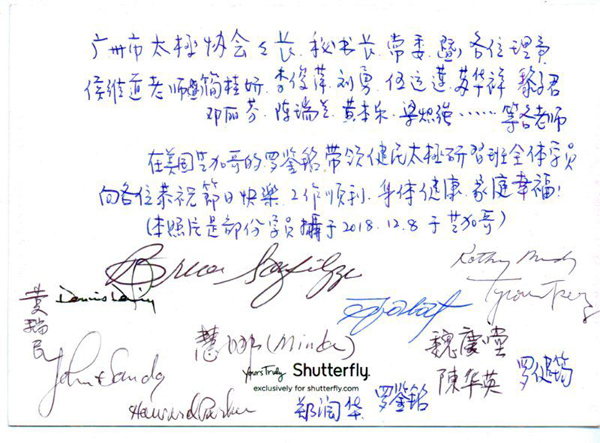 广州市太极协会会长.秘书长.常委.暨各位理事
侯维道老师暨简桂妍.李俊萍.刘勇.伍运莲.苏华祥.黎子君
邓丽芬.陈瑞兰.黄本乐.梁炽强……等各老师
在美国芝加哥的罗鉴铭带领健民太极研習班全体学员
向各位恭祝節日快樂.工作順利.身体健康.家庭幸福!
(本照片是部份学员攝于2018.12.8于芝加哥)
Kathy
黄瑞民
Dennis
慧 (Minda)
魏慶堂
罗健筠
John & Sandy
Yours Truly Shutterfly.
陳华英
exclusively for shutterfly.com
Howard Parker
郑润华
罗鉴銘